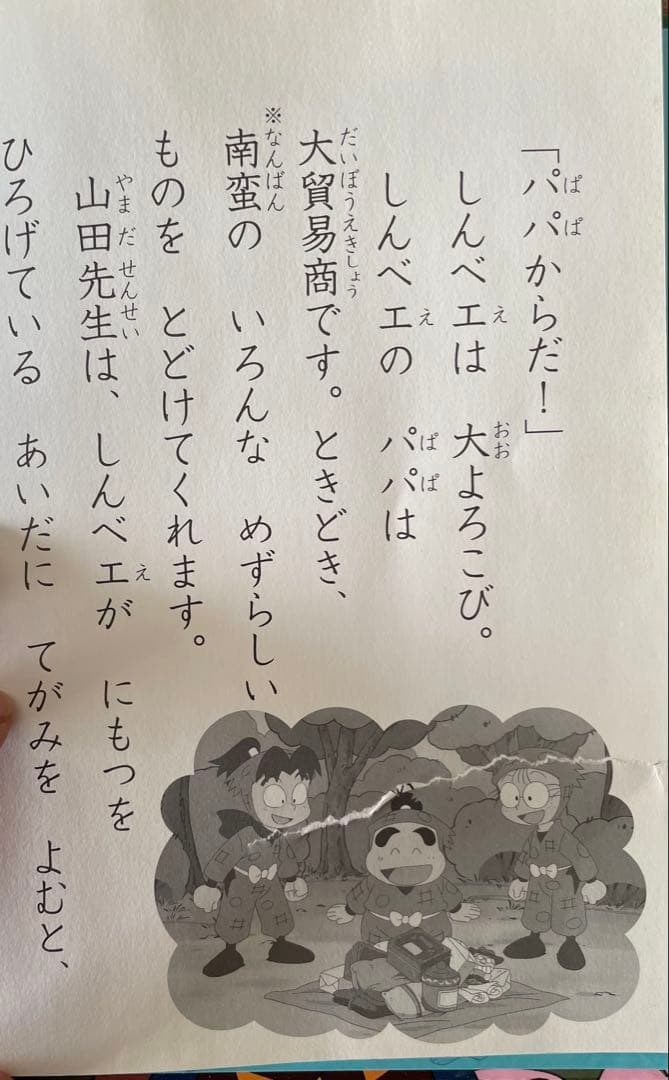 「パパからだ！」
しんベエは　大よろこび。
しんベエの　パパは
大貿易商です。ときどき、
※南蛮の　いろんな　めずらしい
ものを　とどけてくれます。
山田先生は、しんベエが　にもつを
ひろげている　あいだに　てがみを　よむと、